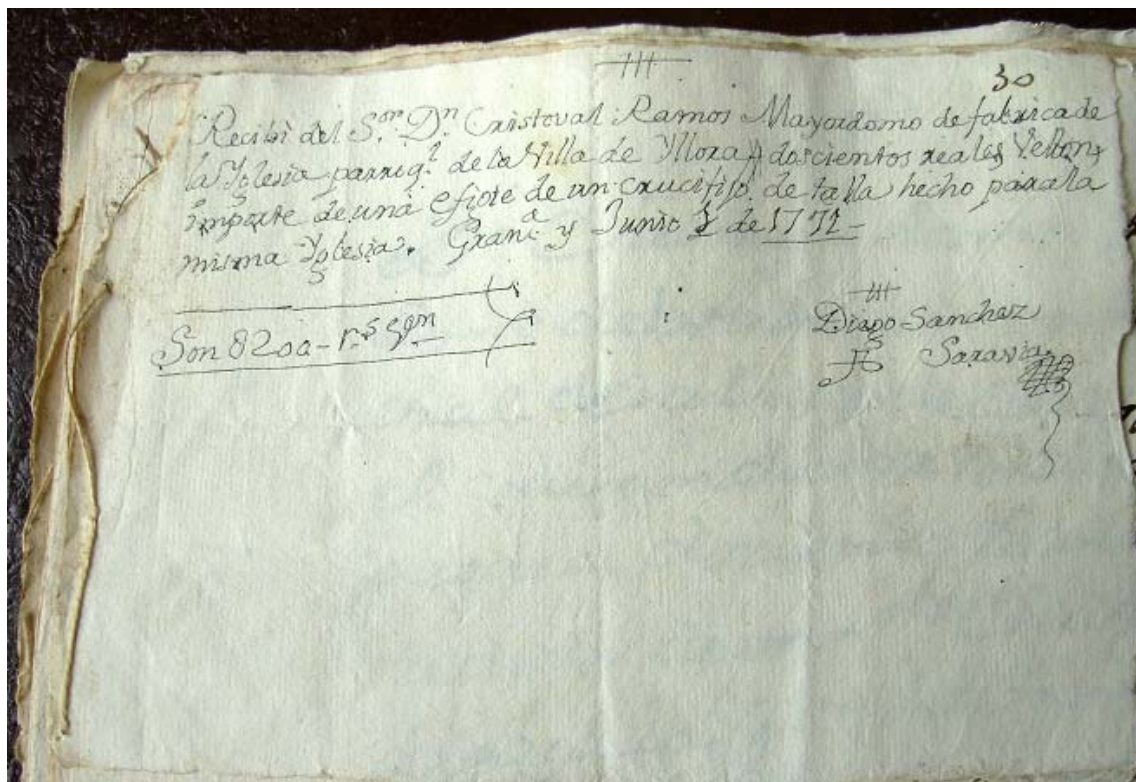 30
Recibi del S.or D.n Cristoval Ramos Mayordomo de fabrica de
la Yglesia parriq.l de la Villa de Yllora doscientos reales Vellon,
importe de una efigie de un crucifijo de talla hecho para la
misma Yglesia. Gran.a y Junio 1 de 1771-
Son 8200- r.s
Diego Sanchez
Saravia